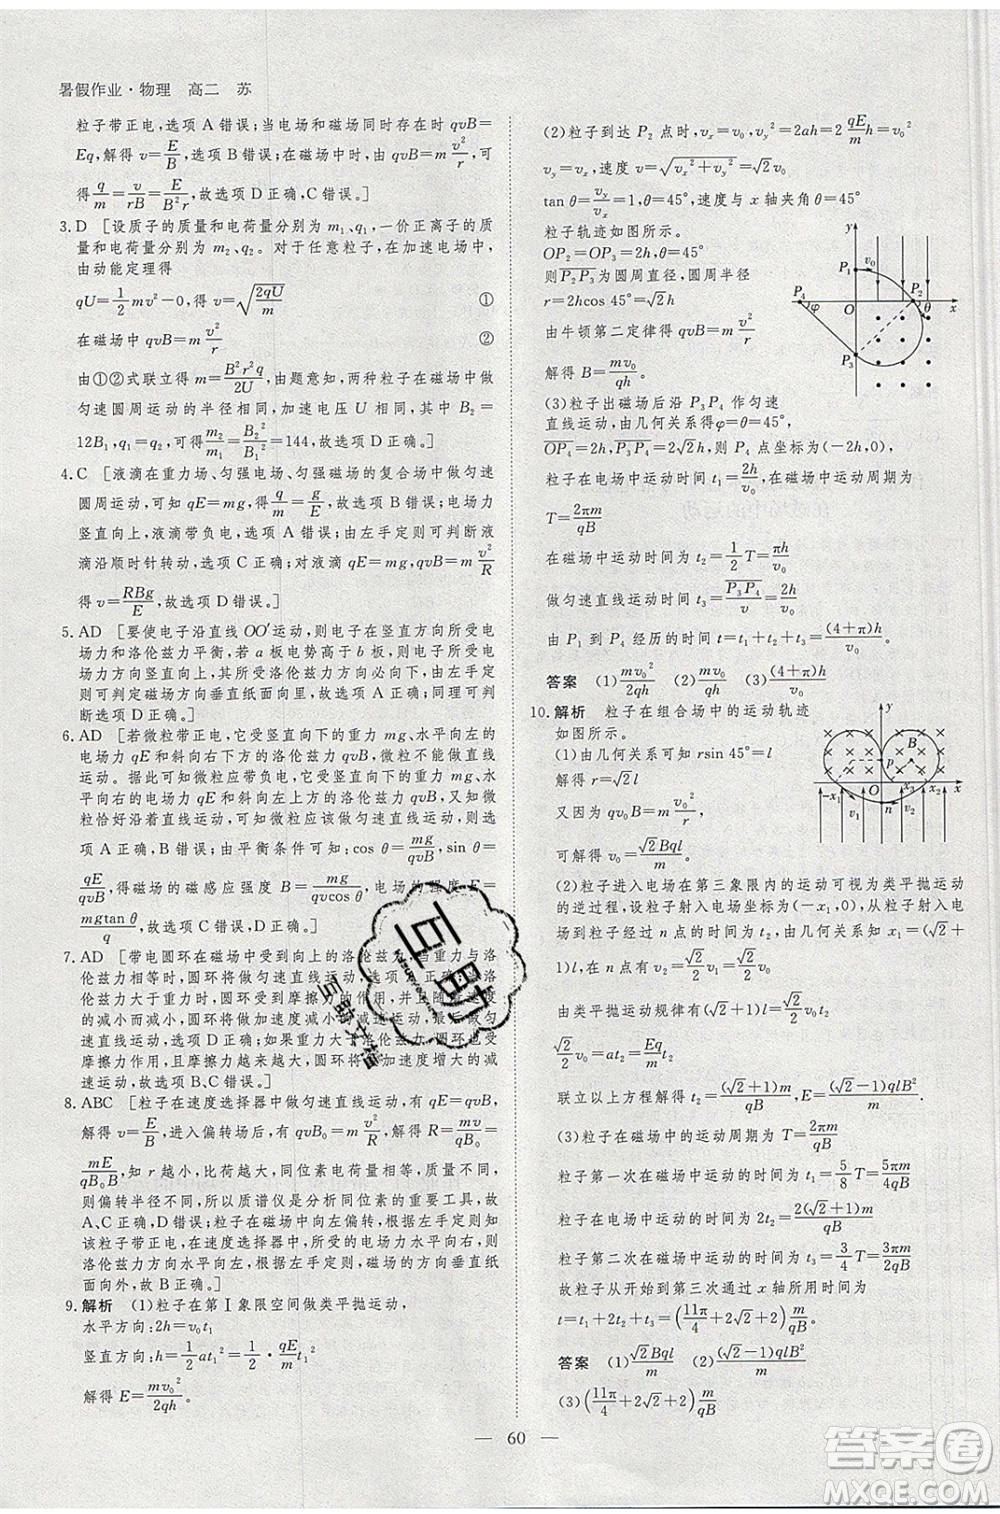 暑假作业·物理 高二 苏
粒子带正电,选项A错误;当电场和磁场同时存在时 qvB=
Eq,解得 v=E/B,选项B错误;在磁场中时,qvB=m v²/r,可
得 q/m=v/rB=E/B²r,故选项D正确,C错误。]
3. D [设质子的质量和电荷量分别为 m₁、q₁,一价正离子的质
量和电荷量分别为 m₂、q₂。对于任意粒子,在加速电场中,
由动能定理得
qU=1/2 mv²-0,得 v=√(2qU/m) ①
在磁场中 qvB=m v²/r ②
由①②式联立得 m=B²r²q/2U,由题意知,两种粒子在磁场中做
匀速圆周运动的半径相同,加速电压U不变,其中 B₂=
12B₁,q₁=q₂,可得 m₂/m₁=B₂²/B₁²=144,故选项D正确。]
4. C [液滴在重力场、匀强电场、匀强磁场的复合场中做匀速
圆周运动,可知 qE=mg,得 q/m=g/E,故选项B错误;电场力
竖直向上,液滴带负电,选项A错误;由左手定则可判断液
滴沿顺时针转动,选项C正确;对液滴 qE=mg,qvB=m v²/R
得 v=RBg/E,故选项D错误。]
5. AD [要使电子沿直线OO′运动,则电子在竖直方向所受电
场力和洛伦兹力平衡,若a板电势高于b板,则电子所受电
场力方向竖直向上,其所受洛伦兹力方向必向下,由左手定
则可判定磁场方向垂直纸面向里,故选项A正确;同理可判
断选项D正确。]
6. AD [若微粒带正电,它受竖直向下的重力 mg、水平向左的
电场力 qE 和斜向右下方的洛伦兹力 qvB,微粒不能做直线
运动,据此可知微粒应带负电,它受竖直向下的重力 mg、水
平向右的电场力 qE 和斜向左上方的洛伦兹力 qvB,又知微
粒恰好沿着直线运动,可知微粒应做匀速直线运动,则选项
A正确,B、C错误;由平衡条件可知:cos θ=mg/qvB,sin θ=
qE/qvB,得磁场的磁感应强度 B=mg/qvcos θ,电场的强度 E=
mgtan θ/q,故选项D正确。]
7. AD [带电圆环在磁场中受到向上的洛伦兹力,当重力与洛
伦兹力相等时,圆环将做匀速直线运动,A正确;当洛
伦兹力大于重力时,圆环受到摩擦力的作用,并且随着速度
的减小而减小,圆环将做加速度减小的减速运动,最后做匀
速直线运动,D正确。如果重力大于洛伦兹力,圆环也受
摩擦力作用,且摩擦力越来越大,圆环将做加速度增大的减
速运动,故选项B、C错误。]
8. ABC [粒子在速度选择器中做匀速直线运动,有 qE=qvB,
解得 v=E/B,进入偏转场后,有 qvB₀=m v²/R,解得 R=mv/qB₀=
mE/qB₀B,知r越小,比荷越大,同位素的电荷量相等,质量不同,
则偏转半径不同,所以质谱仪是分析同位素的重要工具,故
A、C正确,D错误;粒子在磁场中向左偏转,根据左手定则知
该粒子带正电,在速度选择器中,所受电场力水平向右,则
洛伦兹力水平向左,根据左手定则,磁场的方向垂直纸
面向外,故B正确。]
9. 解析 (1)粒子在第Ⅰ象限空间做类平抛运动,
水平方向:2h=v₀t₁
竖直方向:h=1/2 at₁²=1/2·qE/m t₁²
解得 E=mv₀²/2qh。
(2)粒子到达P₂点时,vₓ=v₀,v_y²=2ah=2 qE/m h=v₀²
v_y=vₓ,速度 v=√(vₓ²+v_y²)=√2v₀
tan θ=v_y/vₓ=1,θ=45°,速度与x轴夹角θ=45°
粒子轨迹如图所示。
OP₂=OP₃=2h,θ=45°,
则P₂P₃为圆周直径,圆周半径
r=2hcos 45°=√2h
由牛顿第二定律得 qvB=m v²/r
解得 B=mv₀/qh。
y
P₁
v₀
P₂
P₄
φ
O
θ
x
P₃
(3)粒子出磁场后沿P₃P₄作匀速
直线运动,由几何关系得φ=θ=45°,
OP₄=2h,P₃P₄=2√2h,则P₄点坐标为(-2h,0)
粒子在电场中运动时间 t₁=2h/v₀,在磁场中运动周期为
T=2πm/qB
在磁场中运动时间为 t₂=1/2 T=πh/v₀
做匀速直线运动时间 t₃=P₃P₄/v=2h/v₀
由P₁到P₄经历的时间 t=t₁+t₂+t₃=(4+π)h/v₀
答案 (1) mv₀²/2qh (2) mv₀/qh (3) (4+π)h/v₀
10. 解析 粒子在组合场中的运动轨迹
如图所示。
(1)由几何关系可知 rsin 45°=l
解得 r=√2l
又因为 qv₀B=m v₀²/r
可解得 v₀=√2Bql/m
y
B
p
O
-x₁
x₃
x₂
x
v₁
n
v₂
(2)粒子进入电场在第三象限内的运动可视为类平抛运动
的逆过程,设粒子射入电场坐标为(-x₁,0),从粒子射入电
场到粒子经过n点的时间为t₂,由几何关系知 x₁=(√2+
1)l,在n点有 v₂=√2/2 v₁=√2/2 v₀
由类平抛运动规律有(√2+1)l=√2/2 v₀t₂
√2/2 v₀=at₂=Eq/m t₂
联立以上方程解得 t₂=(√2+1)m/qB,E=(√2-1)qlB²/m。
(3)粒子在磁场中的运动周期为 T=2πm/qB
粒子第一次在磁场中运动的时间为 t₁=5/8 T=5πm/4qB
粒子在电场中运动的时间为 2t₂=2(√2+1)m/qB
粒子第二次在磁场中运动的时间为 t₃=3/4 T=3πm/2qB
故粒子从开始到第三次通过x轴所用时间为
t=t₁+2t₂+t₃=(11π/4+2√2+2)m/qB。
答案 (1) √2Bql/m (2) (√2-1)qlB²/m
(3) (11π/4+2√2+2)m/qB
60
互助
互助文档
答案卷
MXQE.COM